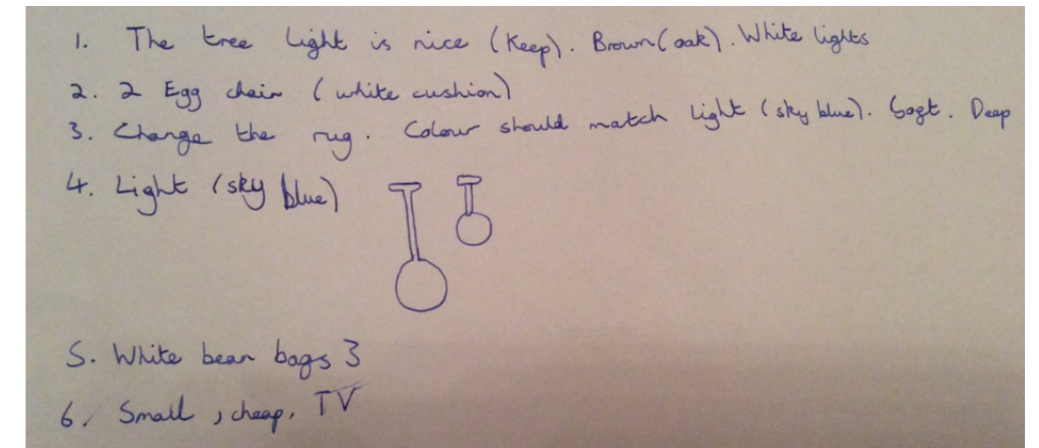 1. The tree light is nice (Keep). Brown (oak). White lights
2. 2 Egg chair (white cushion)
3. Change the rug. Colour should match light (sky blue). Soft. Deep
4. Light (sky blue)
5. White bean bags 3
6. Small, cheap, TV